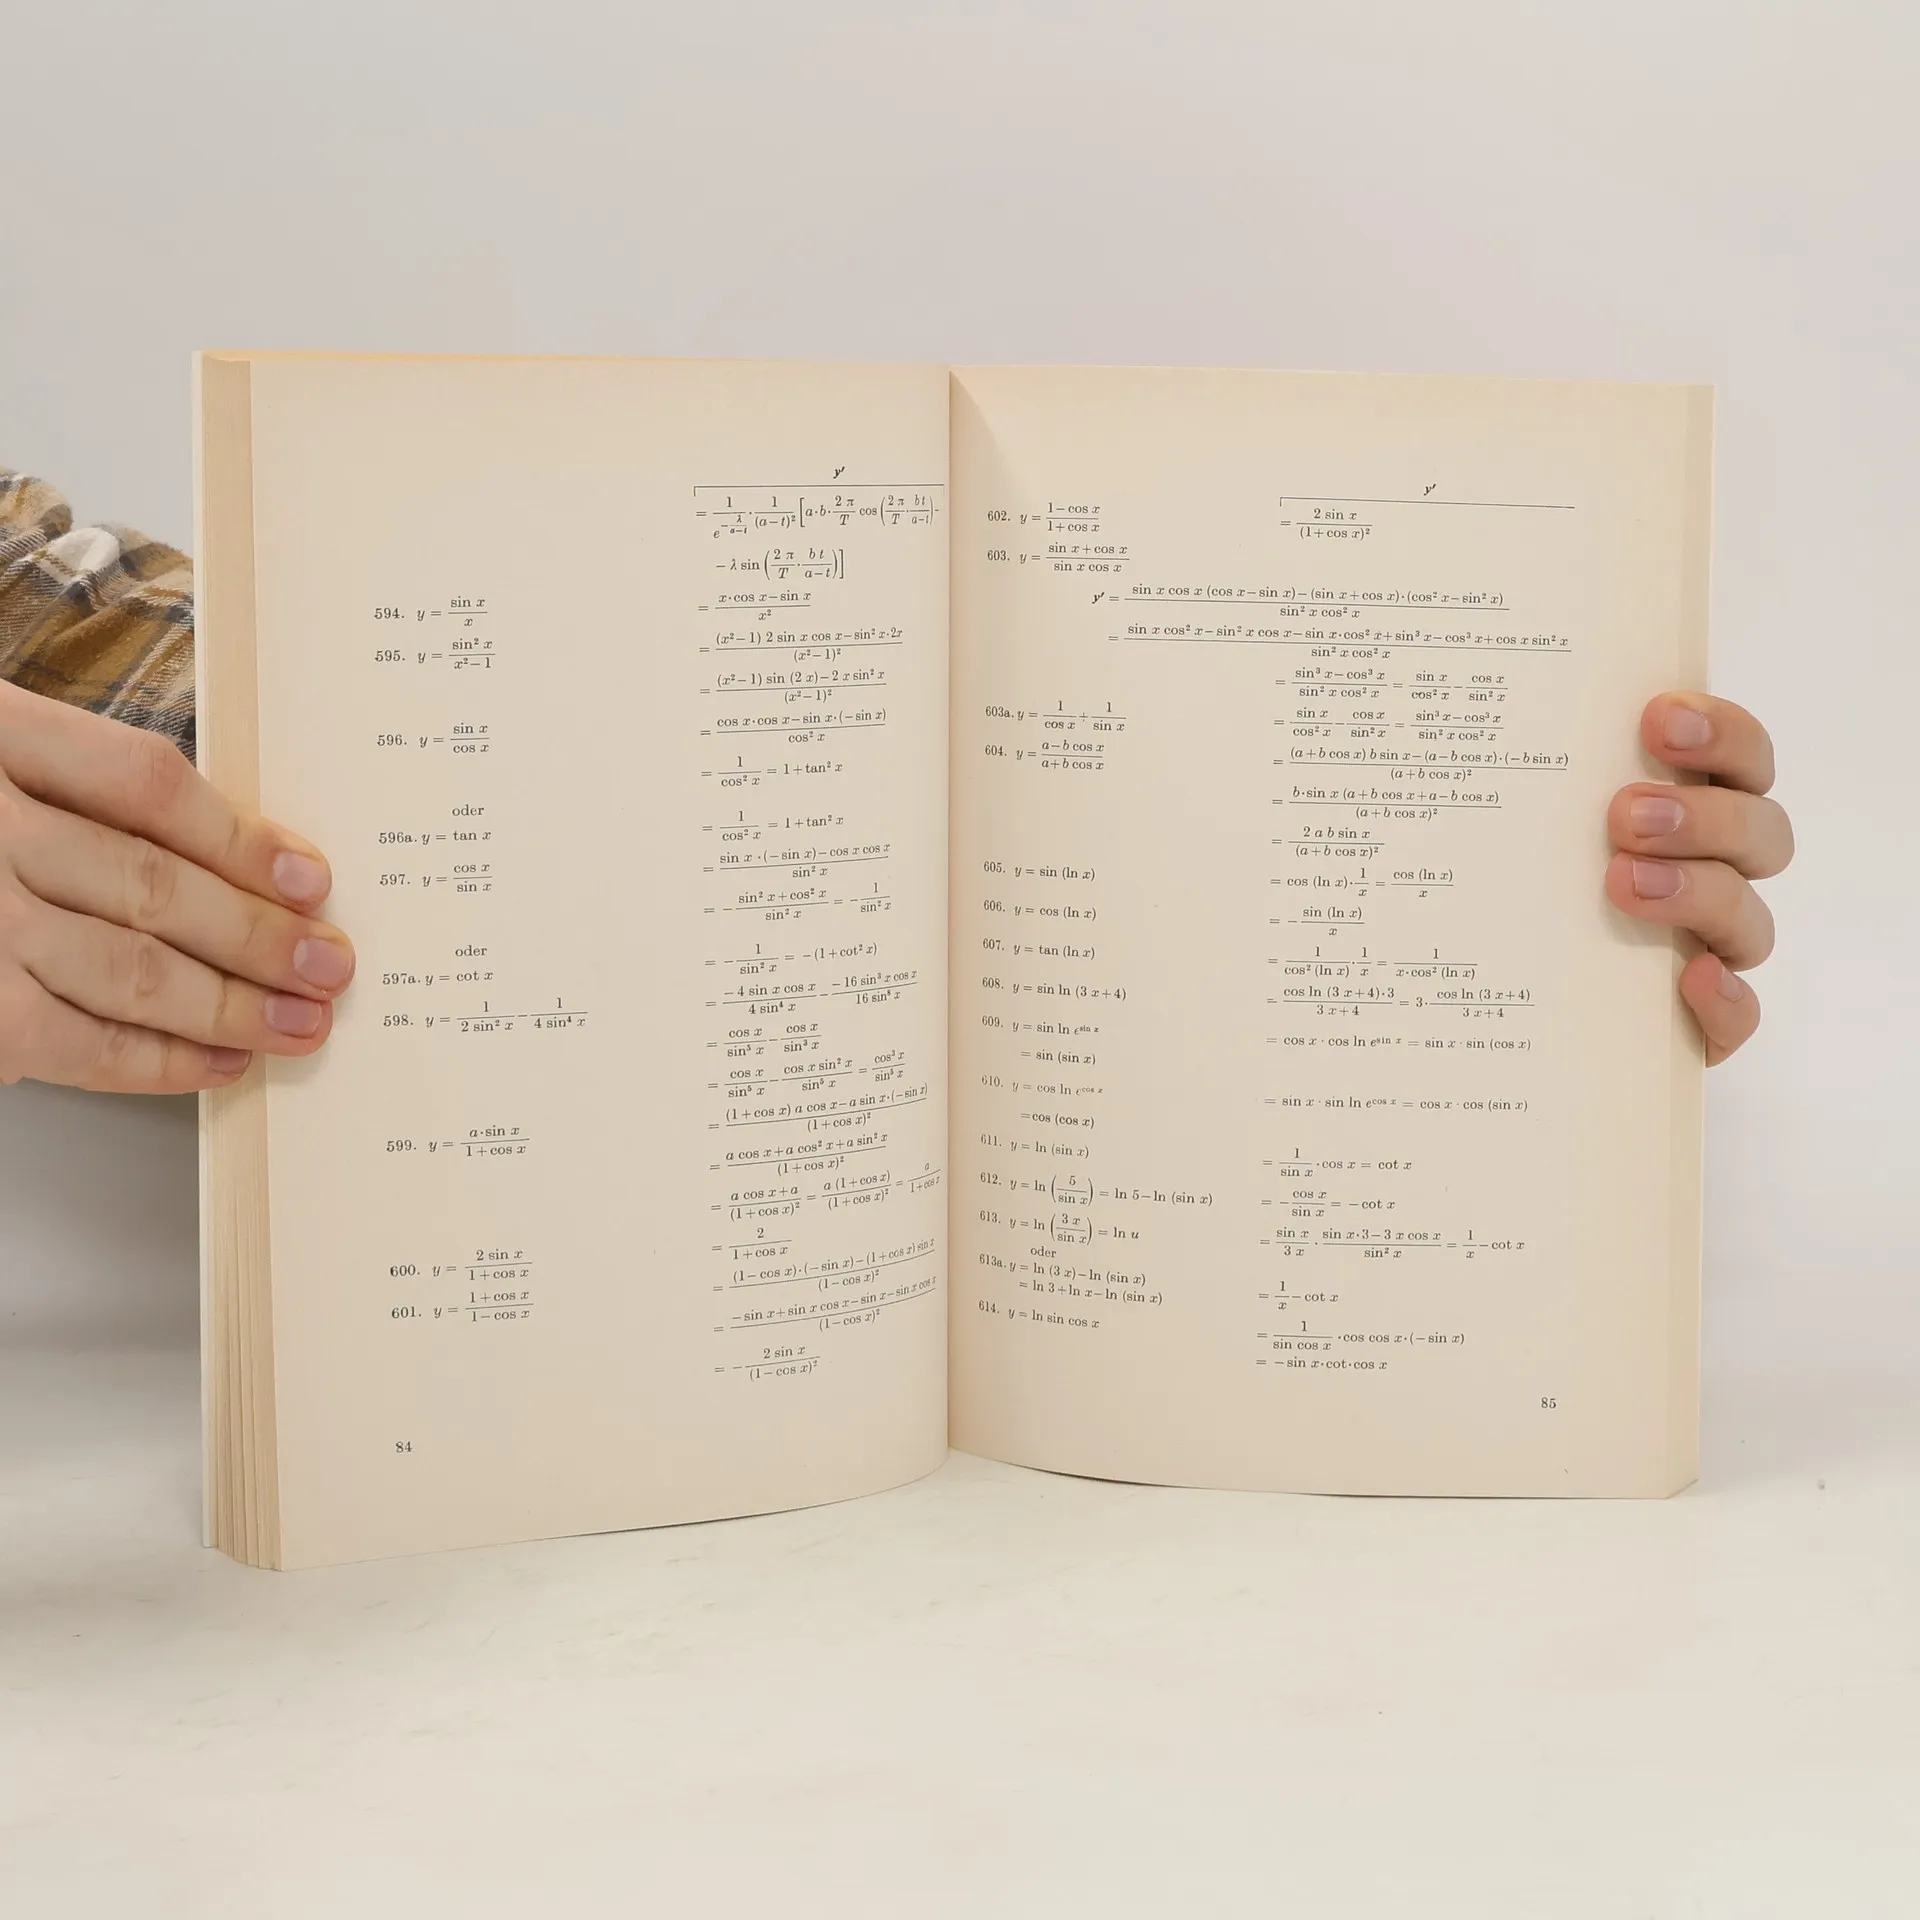 y'
= 1/e^{-λ/(a-t)} · 1/(a-t)² [a·b· 2π/T cos (2π/T · bt/(a-t)) -
- λ sin (2π/T · bt/(a-t))]
594. y = sin x / x = (x·cos x - sin x) / x²
595. y = sin² x / (x² - 1) = ((x² - 1) 2 sin x cos x - sin² x·2x) / (x² - 1)²
= ((x² - 1) sin (2 x) - 2 x sin² x) / (x² - 1)²
596. y = sin x / cos x = (cos x·cos x - sin x·(-sin x)) / cos² x
= 1 / cos² x = 1 + tan² x
oder
596a. y = tan x = 1 / cos² x = 1 + tan² x
597. y = cos x / sin x = (sin x ·(-sin x) - cos x cos x) / sin² x
= - (sin² x + cos² x) / sin² x = - 1 / sin² x
oder
597a. y = cot x = - 1 / sin² x = -(1 + cot² x)
598. y = 1 / (2 sin² x) - 1 / (4 sin⁴ x) = (-4 sin x cos x) / (4 sin⁴ x) - (-16 sin³ x cos x) / (16 sin⁸ x)
= cos x / sin⁵ x - cos x / sin³ x
= cos x / sin⁵ x - cos x sin² x / sin⁵ x = cos³ x / sin⁵ x
599. y = a·sin x / (1 + cos x) = ((1 + cos x) a cos x - a sin x·(-sin x)) / (1 + cos x)²
= (a cos x + a cos² x + a sin² x) / (1 + cos x)²
= (a cos x + a) / (1 + cos x)² = a (1 + cos x) / (1 + cos x)² = a / (1 + cos x)
600. y = 2 sin x / (1 + cos x) = 2 / (1 + cos x)
601. y = (1 + cos x) / (1 - cos x) = ((1 - cos x)·(-sin x) - (1 + cos x) sin x) / (1 - cos x)²
= (-sin x + sin x cos x - sin x - sin x cos x) / (1 - cos x)²
= - 2 sin x / (1 - cos x)²
84
y'
602. y = (1 - cos x) / (1 + cos x) = 2 sin x / (1 + cos x)²
603. y = (sin x + cos x) / (sin x cos x)
y' = (sin x cos x (cos x - sin x) - (sin x + cos x)·(cos² x - sin² x)) / (sin² x cos² x)
= (sin x cos² x - sin² x cos x - sin x·cos² x + sin³ x - cos³ x + cos x sin² x) / (sin² x cos² x)
= (sin³ x - cos³ x) / (sin² x cos² x) = sin x / cos² x - cos x / sin² x
603a. y = 1 / cos x + 1 / sin x = sin x / cos² x - cos x / sin² x = (sin³ x - cos³ x) / (sin² x cos² x)
604. y = (a - b cos x) / (a + b cos x) = ((a + b cos x) b sin x - (a - b cos x)·(-b sin x)) / (a + b cos x)²
= b·sin x (a + b cos x + a - b cos x) / (a + b cos x)²
= 2 a b sin x / (a + b cos x)²
605. y = sin (ln x) = cos (ln x)· 1/x = cos (ln x) / x
606. y = cos (ln x) = - sin (ln x) / x
607. y = tan (ln x) = 1 / cos² (ln x) · 1/x = 1 / (x·cos² (ln x))
608. y = sin ln (3 x + 4) = cos ln (3 x + 4)·3 / (3 x + 4) = 3· cos ln (3 x + 4) / (3 x + 4)
609. y = sin ln e^{sin x}
= sin (sin x) = cos x · cos ln e^{sin x} = sin x · sin (cos x)
610. y = cos ln e^{cos x}
= cos (cos x) = sin x · sin ln e^{cos x} = cos x · cos (sin x)
611. y = ln (sin x) = 1 / sin x ·cos x = cot x
612. y = ln (5 / sin x) = ln 5 - ln (sin x) = - cos x / sin x = - cot x
613. y = ln (3 x / sin x) = ln u = sin x / 3 x · (sin x·3 - 3 x cos x) / sin² x = 1/x - cot x
oder
613a. y = ln (3 x) - ln (sin x)
= ln 3 + ln x - ln (sin x) = 1/x - cot x
614. y = ln sin cos x = 1 / sin cos x ·cos cos x·(-sin x)
= -sin x·cot·cos x
85